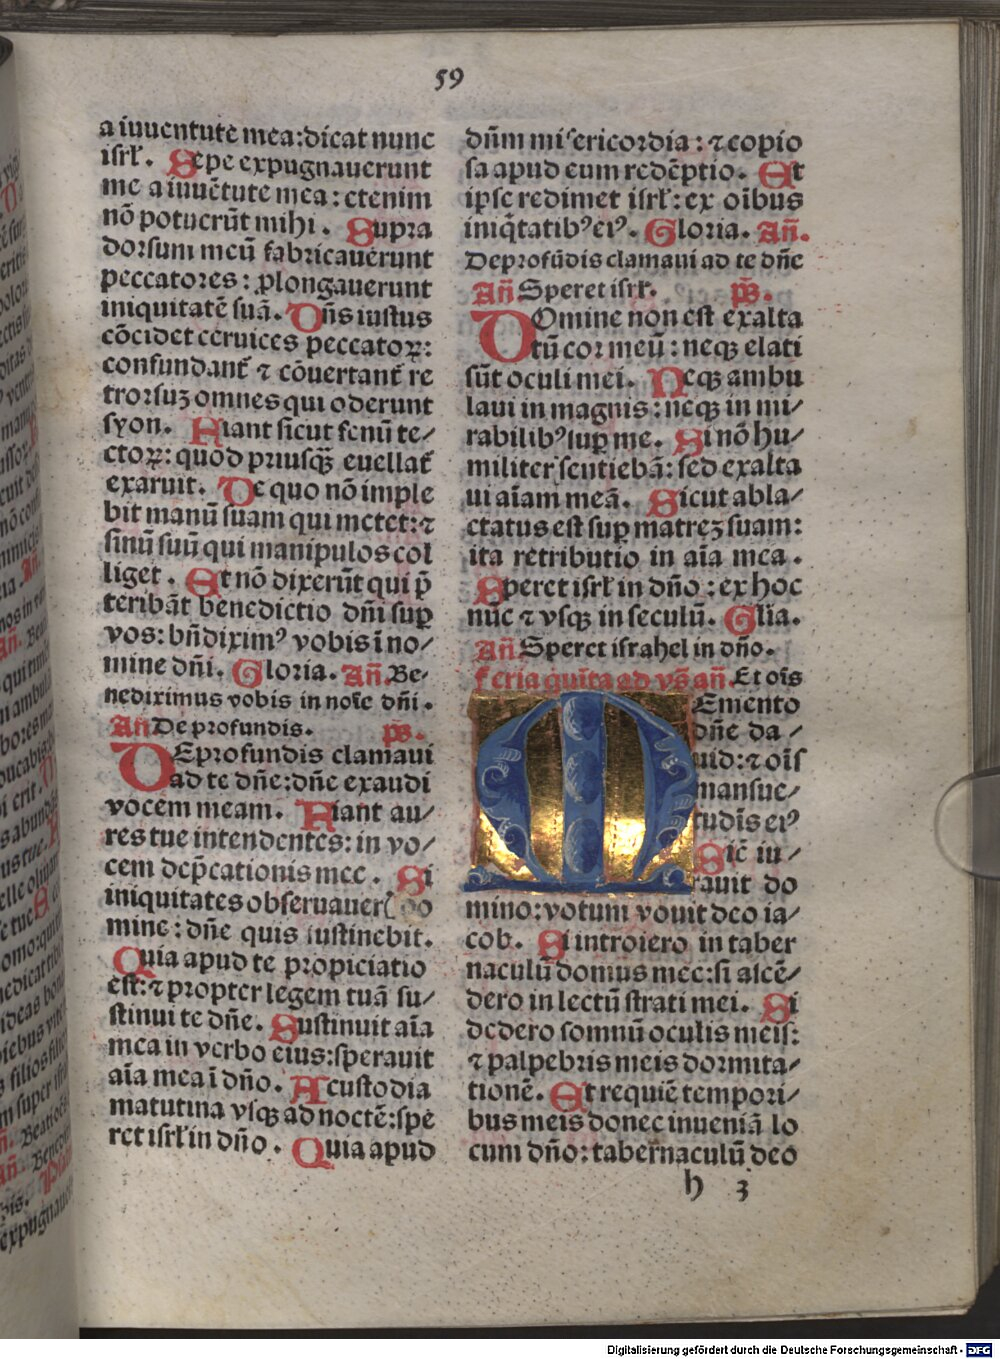 59
a iuuentute mea: dicat nunc
isrł. Sepe expugnauerunt
me a iuuētute mea: etenim
nō potuerūt mihi. Supra
dorsum meū fabricauerunt
peccatores: ꝓlongauerunt
iniquitatē suā. Dñs iustus
cōcidet ceruices peccatoꝝ:
confundant᷑ ⁊ cōuertant᷑ re
trorsuꝫ omnes qui oderunt
syon. Fiant sicut fenū te/
ctoꝝ: quod priusꝙ̄ euellat᷑
exaruit. De quo nō imple
bit manū suam qui metet: ⁊
sinū suū qui manipulos col
liget. Et nō dixerūt qui p̄
teribāt benedictio dñi suꝑ
vos: bñdiximꝰ vobis ī no/
mine dñi. Gloria. Añ. Be-
nediximus vobis in noīe dñi.
Añ De profundis. ps̄.
DEprofundis clamaui
ad te dñe: dñe exaudi
vocem meam. Fiant au/
res tue intendentes: in vo/
cem dep̄cationis mee. Si
iniquitates obseruauer do
mine: dñe quis sustinebit.
Quia apud te propiciatio
est: ⁊ propter legem tuā su/
stinui te dñe. Sustinuit aīa
mea in verbo eius: sperauit
aīa mea ī dño. A custodia
matutina vsqꝫ ad noctē: spe
ret isrł in dño. Quia apud
dñm misericordia: ⁊ copio
sa apud eum redēptio. Et
ipse redimet isrł: ex oībus
iniq̄tatibꝰ eiꝰ. Gloria. Añ.
Deprofūdis clamaui ad te dñe
Añ. Speret isrł. ps̄.
DOmine non est exalta
tū cor meū: neqꝫ elati
sūt oculi mei. Neqꝫ ambu
laui in magnis: neqꝫ in mi/
rabilibꝰ suꝑ me. Si nō hu/
militer sentiebā: sed exalta
ui aīam meā. Sicut abla/
ctatus est suꝑ matreꝫ suam:
ita retributio in aīa mea.
Speret isrł in dño: ex hoc
nūc ⁊ vsqꝫ in seculū. Glīa.
Añ. Speret israhel in dño.
feria quīta ad vs̄ añ. Et oīs
MEmento
dñe da/
uid: ⁊ oīs
mansue/
tudīs eiꝰ
Sic̄ iu/
rauit do
mino: votum vouit deo ia/
cob. Si introiero in taber
naculū domus mee: si ascē/
dero in lectū strati mei. Si
dedero somnū oculis meis:
⁊ palpebris meis dormita/
tionē. Et requiē tempori/
bus meis donec inueniā lo
cum dño: tabernaculū deo
h 3
Digitalisierung gefördert durch die Deutsche Forschungsgemeinschaft - DFG